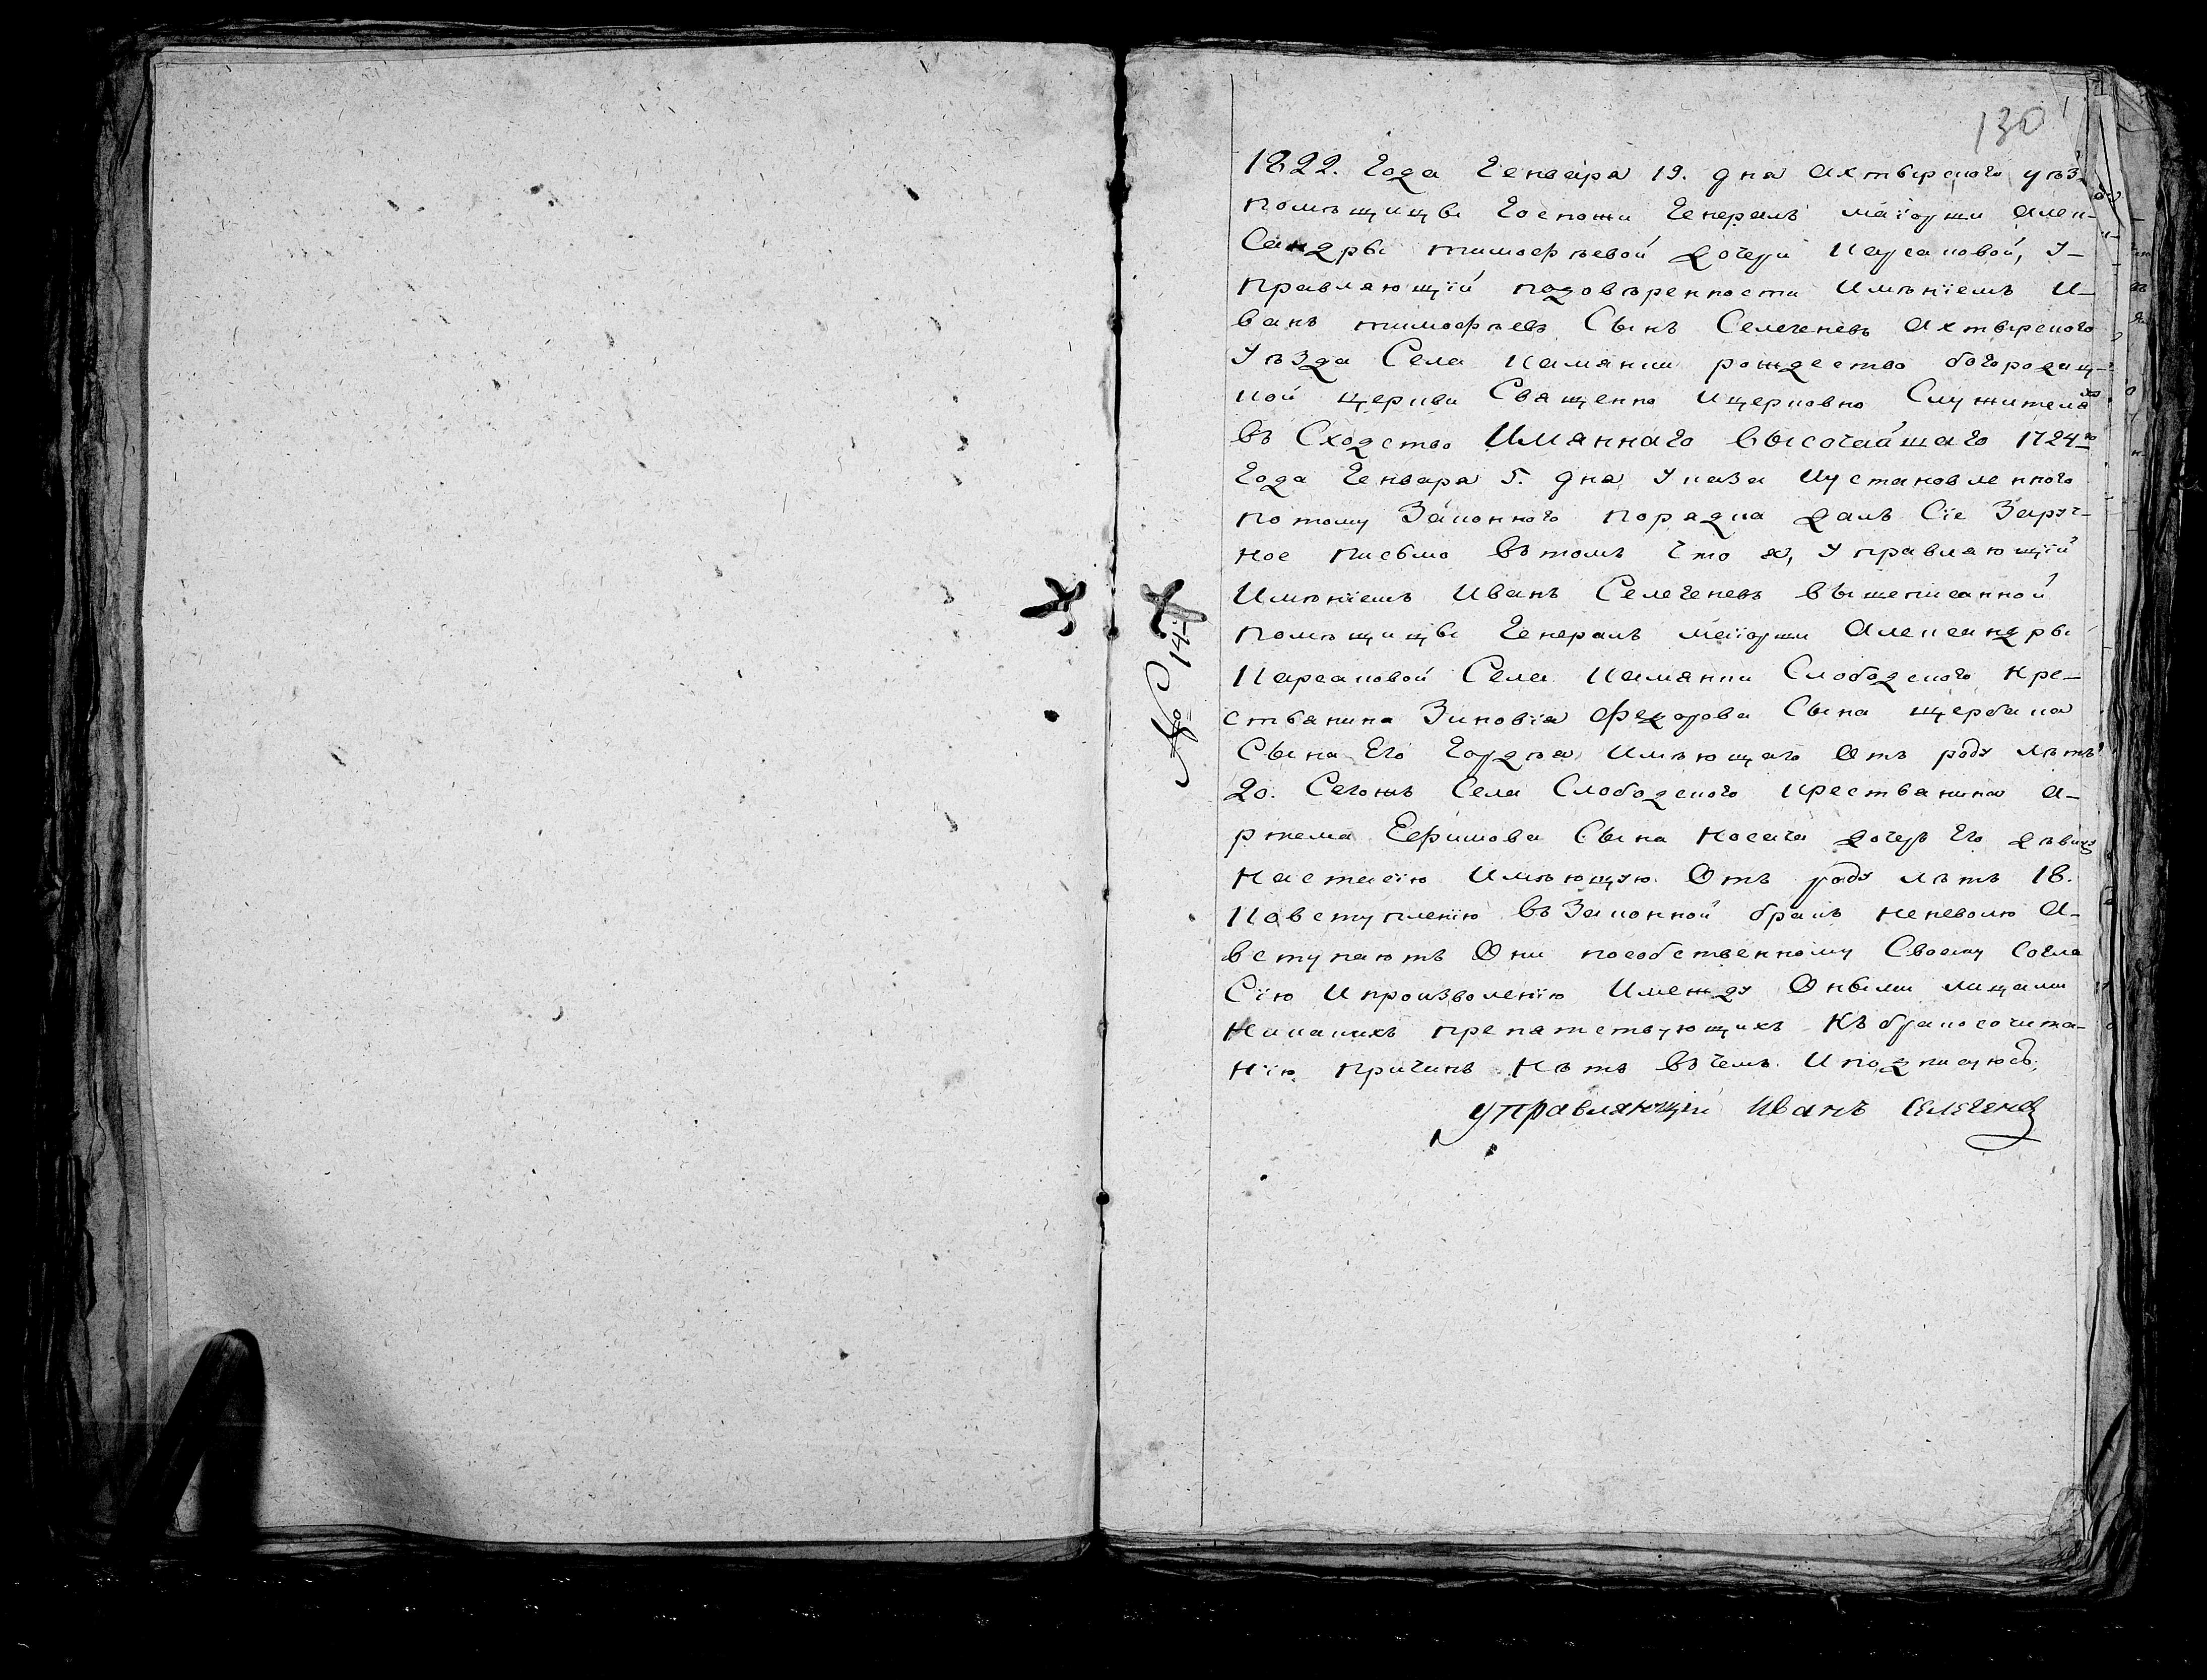 130
1822. Года Генваря 19. дня Ахтырского уѣз.
помѣщицы Госпожи Генералъ маіорши Алек-
Сандры тимофѣевой дочери Карсаковой, У-
правляющій подовѣренности Имѣніемъ И-
ванъ тимофѣевъ Сынъ Селегеневъ Ахтырского
Уѣзда Села Камянки рождество богородиц-
кой церкви Священно Ицерковно Служителя
въ Сходство Имяннаго Высочайшаго 1724го
Года Генваря 5. дня Указа Иустановленного
потому Законного порядка далъ Сіе Заруч-
ное письмо Вътомъ что я, Управляющій
Имѣніемъ Иванъ Селегеневъ Вышеписанной
помѣщицы Генералъ маіорши Александры
Карсаковой Села Камянки Слободского Кре-
стьянина Зиновія Федорова Сына щербака
Сына Его Гордѣя Имѣющаго Отъ роду лѣтъ
20. Сегожъ Села Слободского крестьянина А-
ртема Ефимова Сына Носача дочерь Его дѣвицу
Настасію Имѣющую Отъ роду лѣтъ 18.
Ковступленію ВъЗаконной бракъ Неневолю А-
вступаютъ Они пособственному Своему Согла
Сію Ипроизволенію Имежду Оными лицами
Никакихъ препятствующихъ Къбракосочита-
нію причинъ Нѣтъ Въчемъ Иподписуюсь;
управляющій Иванъ Селегеневъ
№ 14й